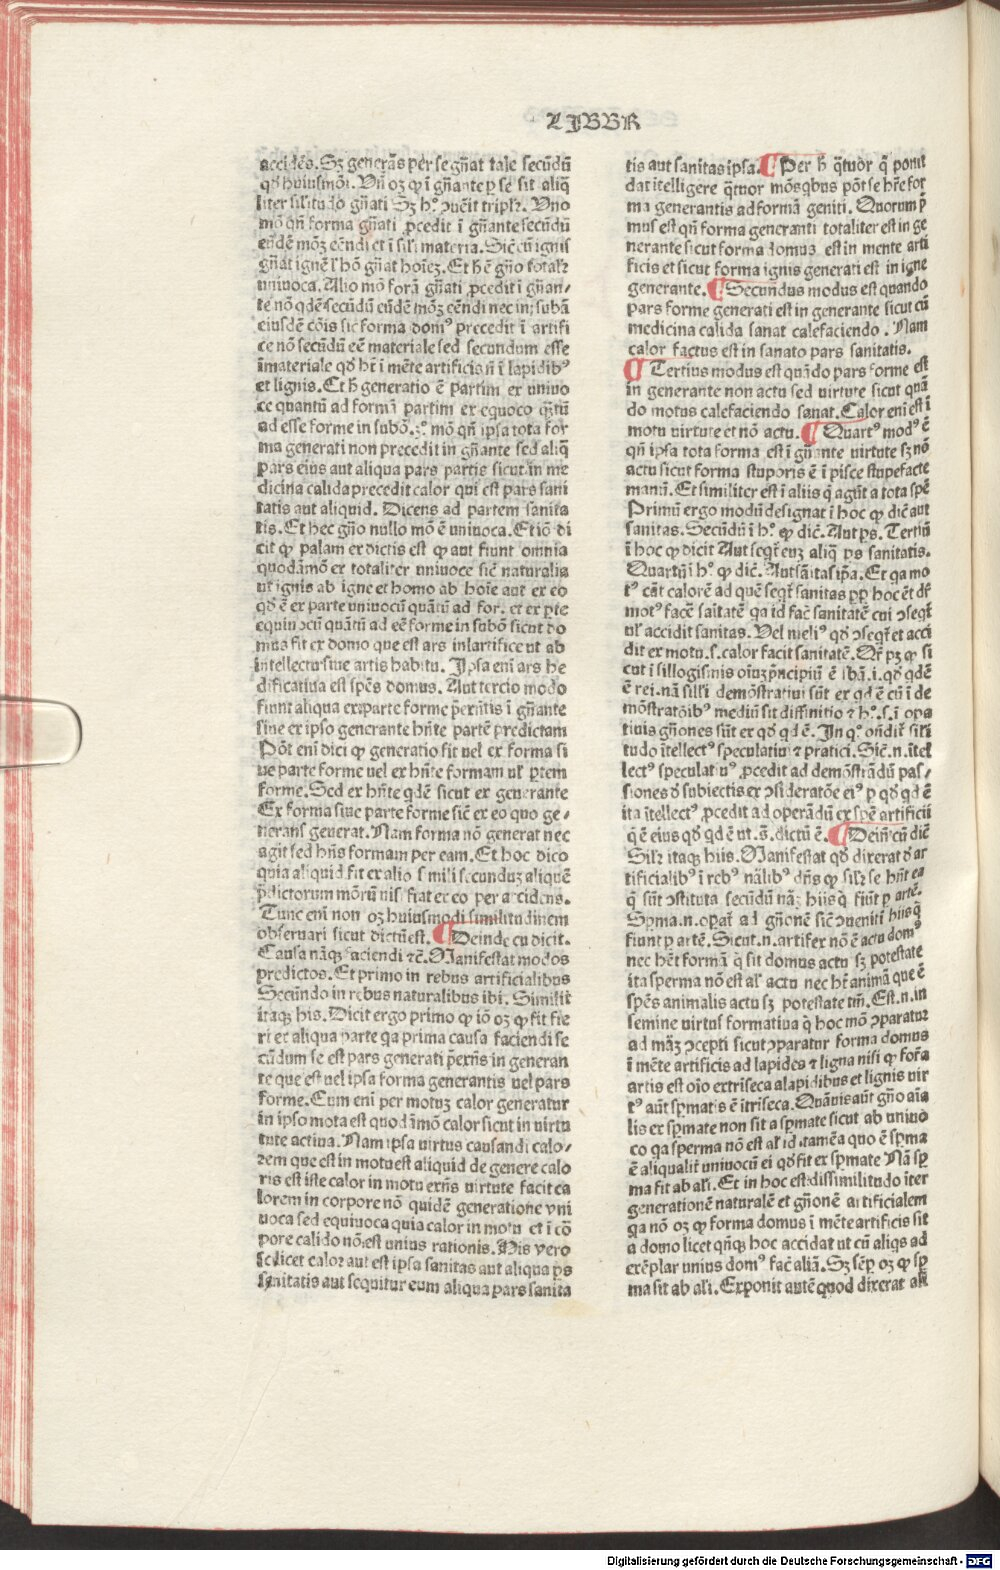 LIBBR
accidēs. Sꝫ generās per se gñat tale secūdū
qđ huiusmōi. Vñ oꝫ ꝙ ī gñante ꝑ se sit aliq̄
liter sil'itudo gñati Sꝫ h.° ↄuēit tripl'r. Vno
mō qñ forma gñati ꝓcedit ī gñante secūdū
eūdē mōꝫ eēndi et ī sil'i materia. Sič cū ignis
gñat ignē l' hō gñat hoīeꝫ. Et h̄ ē gñio total'r
uniuoca. Alio mō forā gñati ꝓcedit ī gñan-
te nō qdē secūdū eūdē mōꝫ eēndi nec in subā
eiusdē cōis sic forma dom⁹ precedit ī artifi
ce nō secūdū eē materiale sed secundum esse
īmateriale qđ hēt ī mēte artificis nō ī lapidib⁹
et lignis. Et h̄ generatio ē partim ex uniuo
ce quantū ad formā partim ex equoco q̄tū
ad esse forme in subō. 3.° mō qñ ipsa tota for
ma generati non precedit in gñante sed aliq̄
pars eius aut aliqua pars partis sicut in me
dicina calida precedit calor qui est pars sani
tatis aut aliquid. Dicens ad partem sanita
tis. Et hec gñio nullo mō ē uniuoca. Et iō di
cit ꝙ palam ex dictis est ꝙ aut fiunt omnia
quodāmō ex totaliter uniuoce sič naturalia
ut ignis ab igne et homo ab hoīe aut ex eo
qđ ē ex parte uniuocū quātū ad for. et ex ꝑte
equiuocū quātū ad eē forme in subō sicut do
mus fit ex domo que est ars in lartifice ut ab
intellectu siue artis habitu. Ipsa enī ars he
dificatiua est spēs domus. Aut tercio modo
fiunt aliqua ex parte forme p̄exn̄tis ī gñante
siue ex ipso generante hñte partē predictam
Pōt enī dici ꝙ generatio fit uel ex forma si
ue parte forme uel ex hñte formam ul' ꝑtem
forme. Sed ex hñte qdē sicut ex generante
Ex forma siue parte forme sič ex eo quo ge-
nerans generat. Nam forma nō generat nec
agit sed hñs formam per eam. Et hoc dico
quia aliquid fit ex alio simili secunduꝫ aliquē
p̄dictorum mōrū nisi fiat ex eo per accidens.
Tunc enī non oꝫ huiusmodi similitudinem
obseruari sicut dictū est. ¶ Deinde cū dicit.
Causa nāqꝫ faciendi ⁊č. Manifestat modos
predictos. Et primo in rebus artificialibus
Secūdo in rebus naturalibus ibi. Similit̄
itaqꝫ his. Dicit ergo primo ꝙ iō oꝫ ꝙ fit fie
ri ex aliqua parte qa prima causa faciendi se
cūdum se est pars generati p̄exñs in generan
te que est uel ipsa forma generantis uel pars
forme. Cum enī per motuꝫ calor generatur
in ipso mota est quodāmō calor sicut in uirtu
tute actiua. Nam ipsa uirtus causandi calo-
rem que est in motu est aliquid de genere calo
ris est iste calor in motu exñs uirtute facit ca
lorem in corpore nō quidē generatione vni
uoca sed equiuoca quia calor in motu et ī cō
pore calido nō est unius rationis. His vero
scdicet calor aut est ipsa sanitas aut aliqua ꝑs
sanitatis aut sequitur eum aliqua pars sanita
tis aut sanitas ipsa. ¶ Per h̄ q̄tuor q̄ ponit
dat itelligere q̄tuor mōs qbus pōt se hre for
ma generantis ad formā geniti. Quorum p̄
mus est qñ forma generanti totaliter est in ge
nerante sicut forma domus est in mente arti
ficis et sicut forma ignis generati est in igne
generante. ¶ Secundus modus est quando
pars forme generati est in generante sicut cū
medicina calida sanat calefaciendo. Nam
calor factus est in sanato pars sanitatis.
¶ Tertius modus est quādo pars forme est
in generante non actu sed uirtute sicut quā
do motus calefaciendo sanat. Calor enī est ī
motu uirtute et nō actu. ¶ Quart⁹ mod⁹ ē
qñ ipsa tota forma est ī gñante uirtute sꝫ nō
actu sicut forma stuporis ē ī pisce stupefacte
manū. Et similiter est ī aliis q̄ agūt a tota spē
Primū ergo modū designat ī hoc ꝙ dič aut
sanitas. Secūdū ī h.° ꝙ dič. Aut ꝑs. Tertiū
ī hoc ꝙ dicit Aut seqt̄ euꝫ aliq̄ ꝑs sanitatis.
Quartū ī h.° ꝙ dič. Aut sāitas ip̄a. Et qa mo
t⁹ cāt calorē ad quē seqt̄ sanitas ꝓp̄ hoc ēt dr̄
mot⁹ facē sāitatē qa id fač sanitatē cui ↄseqt̄
ul' accidit sanitas. Vel meli⁹ qđ ↄseqt̄ et acci
dit ex motu .s. calor facit sanitatē. Qr̄ pꝫ ꝙ si
cut ī sillogismis oīuꝫ pncipiū ē sbā .i. qđ qdē
ē rei. nā sill'i demōstratiui sūt ex qd ē cū ī de
mōstratōib⁹ mediū sit diffinitio ⁊ h.° .s. ī opa
tiuis gñones sūt ex qđ qd ē. In q.° ondit̄ sil'i
tudo ītellect⁹ speculatiui ⁊ pratici. Sič .n. ītel
lect⁹ speculatiu⁹ ꝓcedit ad demōstrādū pas-
siones đ subiectis ex ↄsideratōe ei⁹ ꝑ qđ qd ē
ita ītellect⁹ ꝓcedit ad operādū ex spē artificii
q̄ ē eius qđ qd ē ut .s. dictū ē. ¶ Deīn cū dič
Sil'r itaqꝫ hiis. Manifestat qđ dixerat đ ar
tificialib⁹ ī reb⁹ nālib⁹ dñs ꝙ sil'r se hñt ea
q̄ sūt ↄstituta secūdū nāꝫ hiis q̄ fiūt ꝑ artē.
Spma .n. opat̄ ad gñonē sič ↄueniti hiis q̄
fiunt ꝑ artē. Sicut .n. artifex nō ē actu dom⁹
nec hēt formā q̄ sit domus actu sꝫ potestate
ita sperma nō est al' actu nec ht̄ animā que ē
spēs animalis actu sꝫ potestate tm̄. Est .n. in
semine uirtus formatiua q̄ hoc mō ↄparatur
ad māꝫ ↄcepti sicut ↄparatur forma domus
ī mēte artificis ad lapides ⁊ ligna nisi ꝙ forā
artis est oīo extriseca a lapidibus et lignis uir
t⁹ aūt spmatis ē ītriseca. Quāuis aūt gñio aīa
lis ex spmate non sit a spmate sicut ab uniuo
co qa sperma nō est al' id tamē a quo ē sꝑma
ē aliqualit̄ uniuocū ei qđ fit ex spmate Nā sp
ma fit ab al'i. Et in hoc est dissimilitudo īter
generationē naturalē et gñonē artificialem
qa nō oꝫ ꝙ forma domus ī mēte artificis sit
a domo licet qñqꝫ hoc accidat ut cū aliqs ad
exēplar unius dom⁹ fač aliā. Sꝫ sēꝑ oꝫ ꝙ sp
ma sit ab al'i. Exponit autē quod dixerat al'i
Digitalisierung gefördert durch die Deutsche Forschungsgemeinschaft - DFG